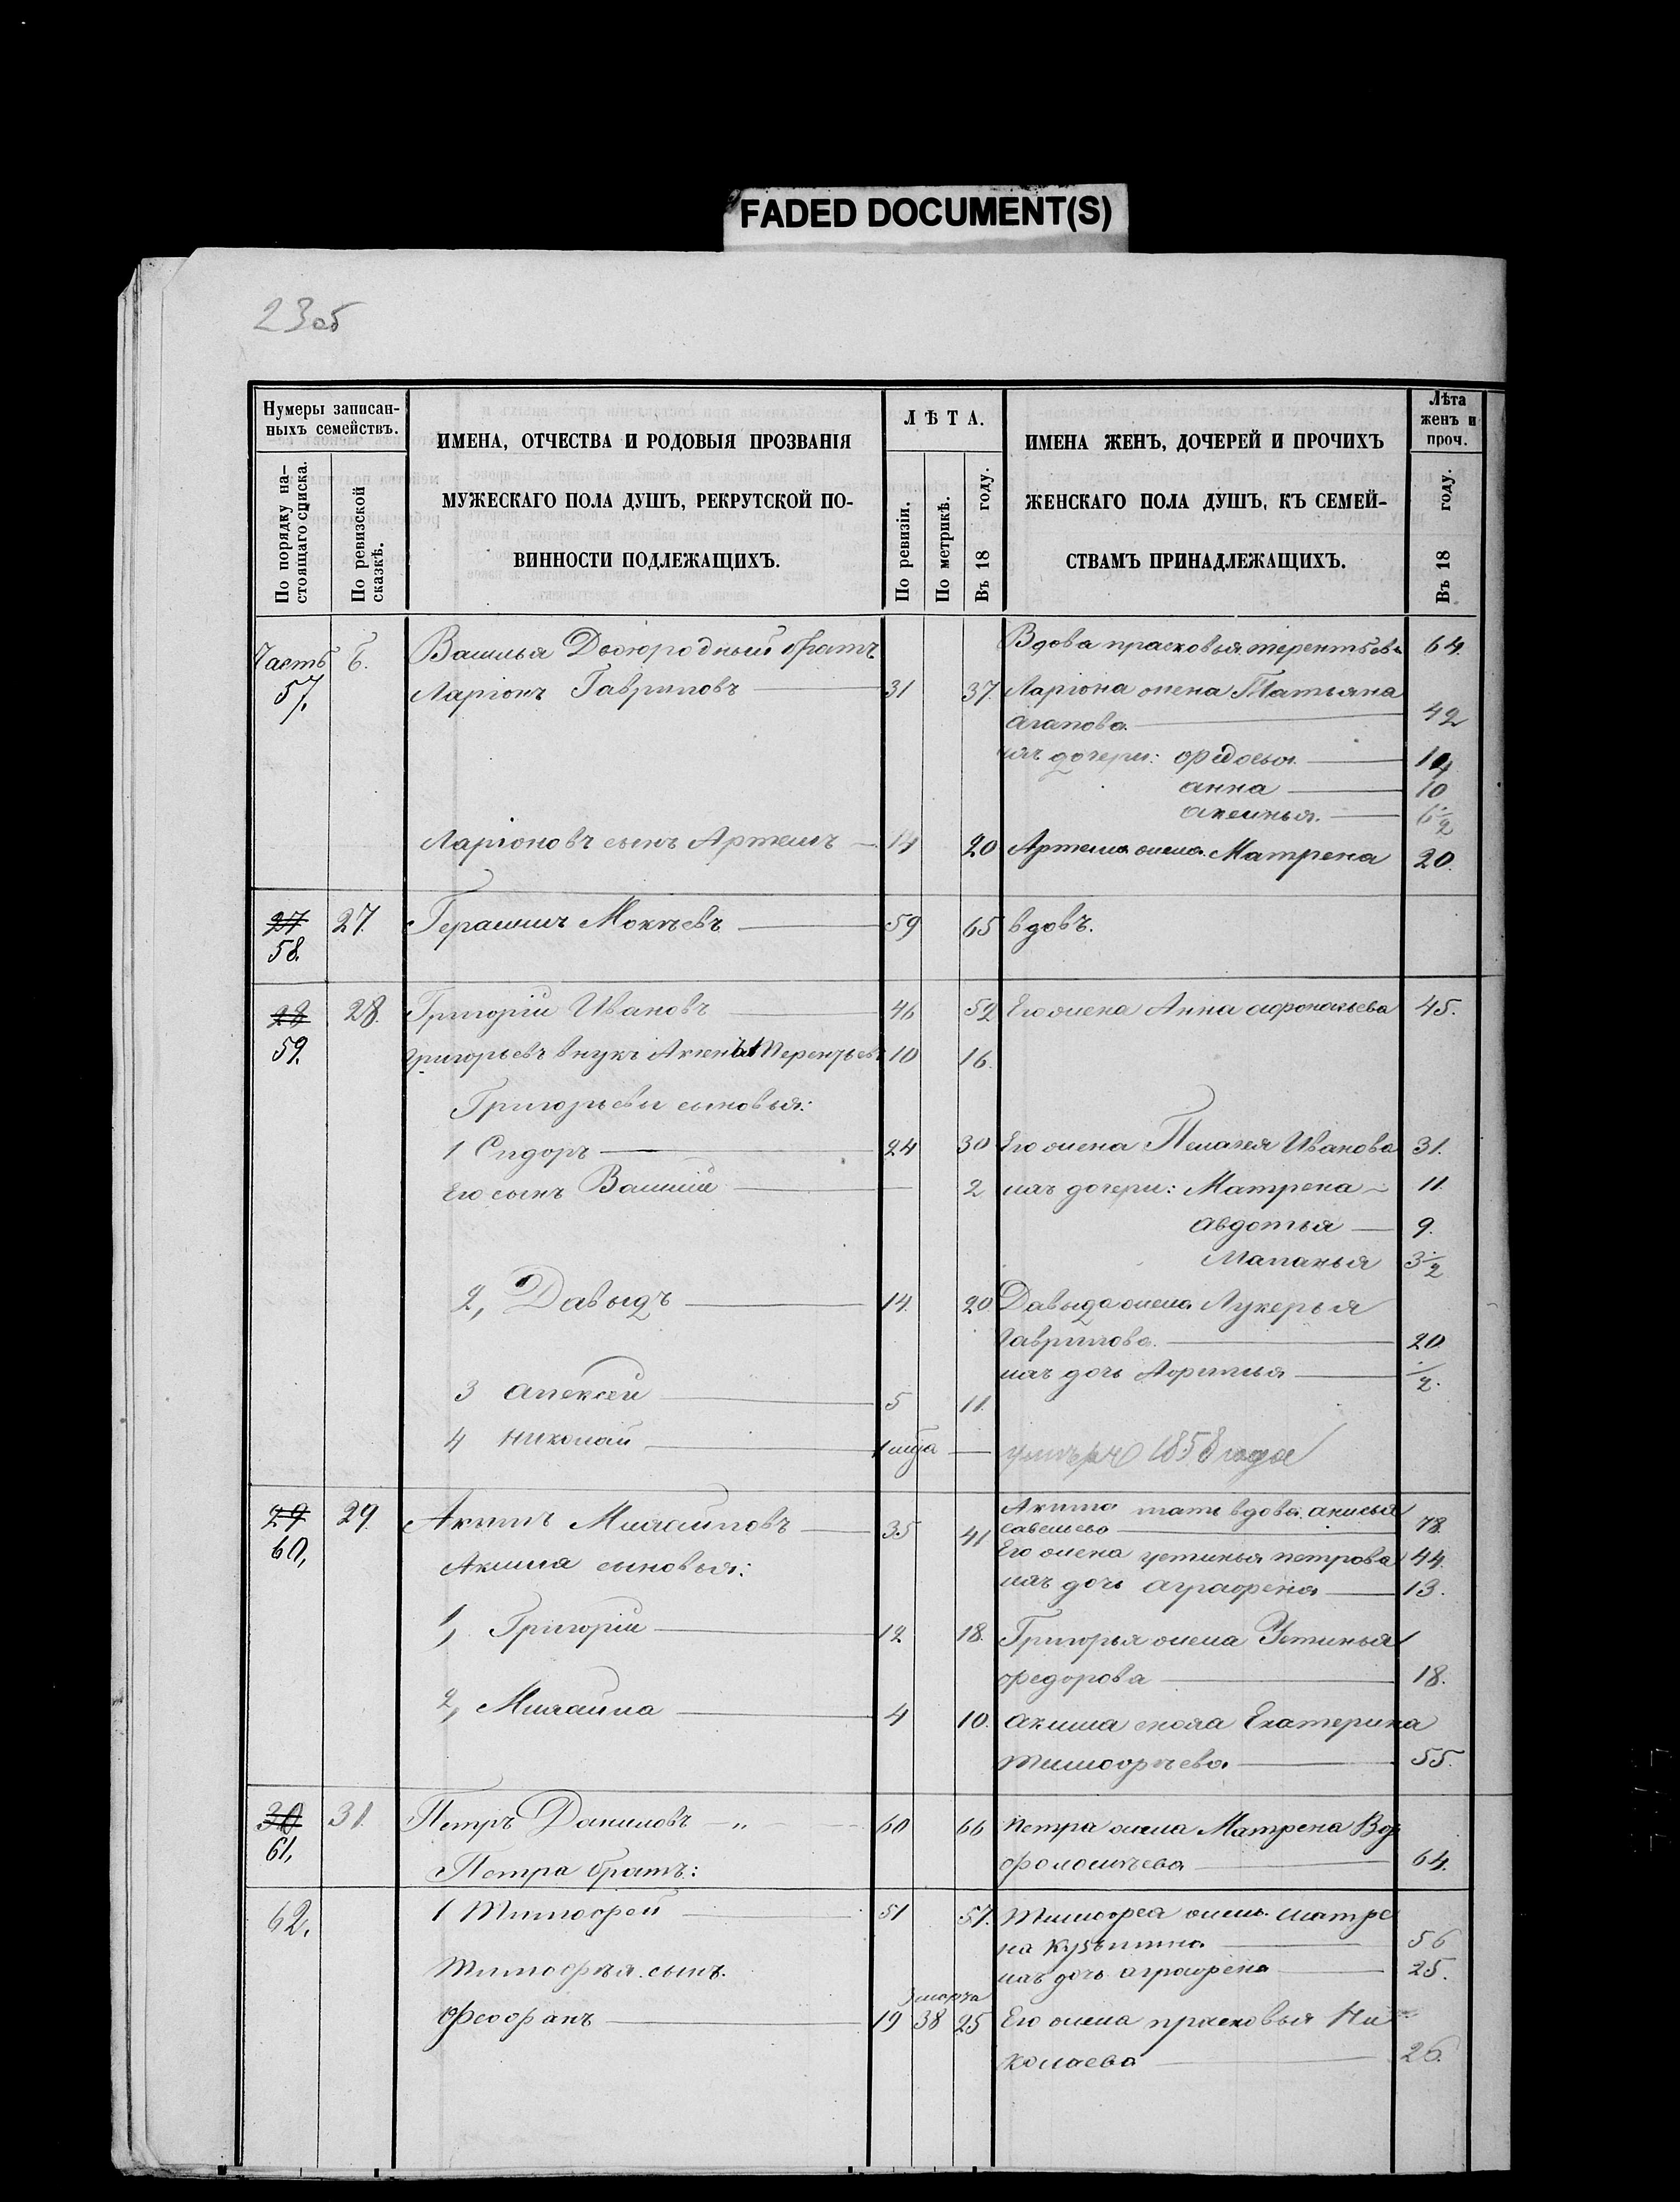 FADED DOCUMENT(S)
23об
Нумеры записан-
ныхъ семействъ.
По порядку на-
стоящаго списка.
По ревизской
сказкѣ.
ИМЕНА, ОТЧЕСТВА И РОДОВЫЯ ПРОЗВАНІЯ
МУЖЕСКАГО ПОЛА ДУШЪ, РЕКРУТСКОЙ ПО-
ВИННОСТИ ПОДЛЕЖАЩИХЪ.
ЛѢТА.
По ревизіи.
По метрикѣ.
Въ 18 году.
ИМЕНА ЖЕНЪ, ДОЧЕРЕЙ И ПРОЧИХЪ
ЖЕНСКАГО ПОЛА ДУШЪ, КЪ СЕМЕЙ-
СТВАМЪ ПРИНАДЛЕЖАЩИХЪ.
Лѣта
женъ и
проч.
Въ 18 году.
Часть Василья Двоюродный братъ Вдова прасковья терентьева 64.
57. Ларіонъ Гавриловъ 31 37. Ларіона жена Татьяна
агапова 42
ихъ дочери: федосья 14
анна 10
аксинья 6 1/2
Ларіоновъ сынъ Артемъ 14 20 Артема жена Матрена 20.
27 27. Герасимъ Мокѣевъ 59 65 вдовъ.
58.
28 28. Григорій Ивановъ 46 52 Его жена Анна афонасьева 45.
59. Григорьевъ внукъ Терентьевъ 10 16.
Григорьевы сыновья:
1 Сидоръ 24 30 Его жена Пелагея Иванова 31.
Его сынъ Василій 2 ихъ дочери: Матрена 11.
авдотья 9.
Маланья 3 1/2
2, Давыдъ 14. 20 Давыда жена Лукерья
Гаврилова 20
ихъ дочь 1/2.
3 алексей 5 11.
4 николай умеръ 1858 года
29 29. Акимъ Михайловъ 35 41 Акима мать вдова анисья
савельева 78.
60, Его жена устинья петрова 44.
Акима сыновья: ихъ дочь аграфена 13.
1, Григорій 12 18. Григорья жена Устинья
федорова 18.
2, Михайла 4 10. акима сноха Екатерина
тимофѣева 55.
30 31. Петръ Даниловъ „ 60 66 петра жена Матрена Вор
61, Петра братъ: фоломѣева 64.
62, 1 Тимофей 51 57. тимофея жена матре
на кузьмина 56
Тимофѣя сынъ. ихъ дочь аграфена 25.
марта
феофанъ 19 38 25 Его жена прасковья Ни
колаева 26.